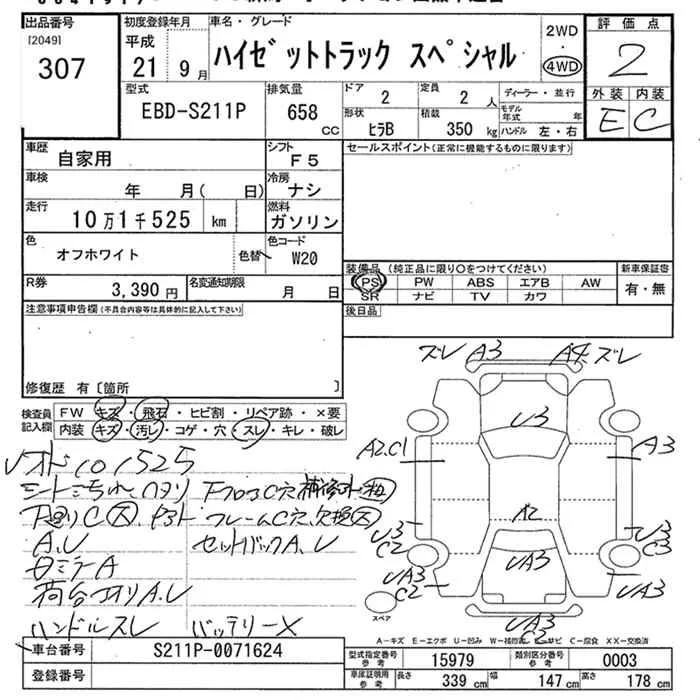 出品番号
[2049]
307
初度登録年月
平成
21 9月
車名・グレード
ハイゼットトラック スペシャル
2WD
・
4WD
評価点
2
外装 内装
E C
型式
EBD-S211P
排気量
658 CC
ドア
2
定員
2 人
形状
ヒラB
積載
350 kg
ディーラー・並行
モデル年式 年
ハンドル 左・右
車歴
自家用
シフト
F5
車検
年 月( 日)
冷房
ナシ
走行
10万1千525 km
燃料
ガソリン
色
オフホワイト
色替
色コード
W20
R券
3,390 円
名変通知期限
月 日
セールスポイント(正常に機能するものに限ります)
装備品 (純正品に限り○をつけてください)
PS PW ABS エアB AW
SR ナビ TV カワ
新車保証書
有・無
後日品
注意事項申告欄(不具合内容等は具体的に記入して下さい)
修復歴 有〔箇所 〕
検査員記入欄
FW キズ・飛石・ヒビ割・リペア跡・×要
内装 キズ・汚レ・コゲ・穴・スレ・キレ・破レ
オド101525
シート汚れ ハヌリ
下廻りC大
フロアC穴 補修
フレームC穴、欠損大
A.U
セットバックA.U
日ミラA
荷台アオリA.U
ハンドルスレ バッテリー×
ズレ A3
A4 ズレ
U3
A2.C1
A3
A2
U3
C2
U3
C3
UA3
UA3
C2
UA3
UA3
C3
スペア
A-キズ E-エクボ U-凹み W-補修跡 S-サビ C-腐食 XX-交換済
車台番号
S211P-0071624
登録番号
型式指定番号 参考
15979
類別区分番号 参考
0003
車庫証明用 参考
長さ 339 cm
幅 147 cm
高さ 178 cm